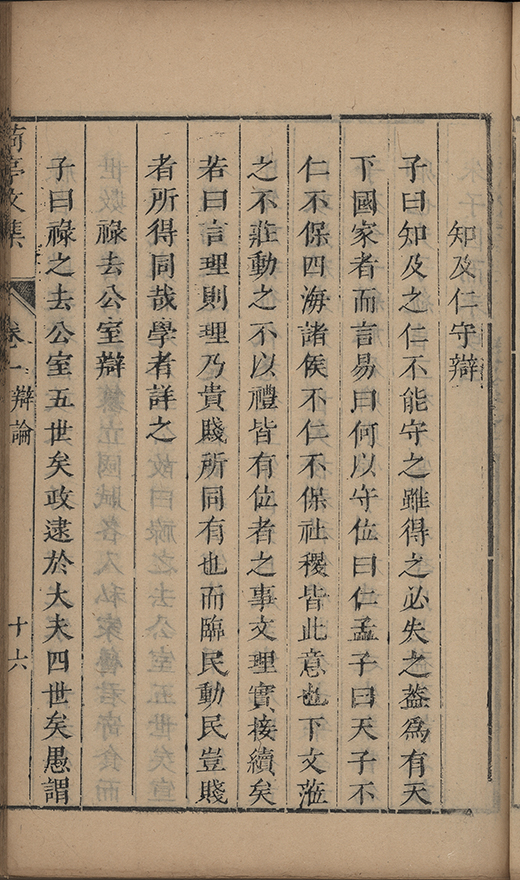 知及仁守辯
子曰知及之仁不能守之雖得之必失之葢爲有天
下國家者而言易曰何以守位曰仁孟子曰天子不
仁不保四海諸侯不仁不保社稷皆此意也下文涖
之不莊動之不以禮皆有位者之事文理實接續矣
若曰言理則理乃貴賤所同有也而臨民動民豈賤
者所得同哉學者詳之
祿去公室辯
子曰祿之去公室五世矣政逮於大夫四世矣愚謂
荷亭文集 卷一 辯論 十六